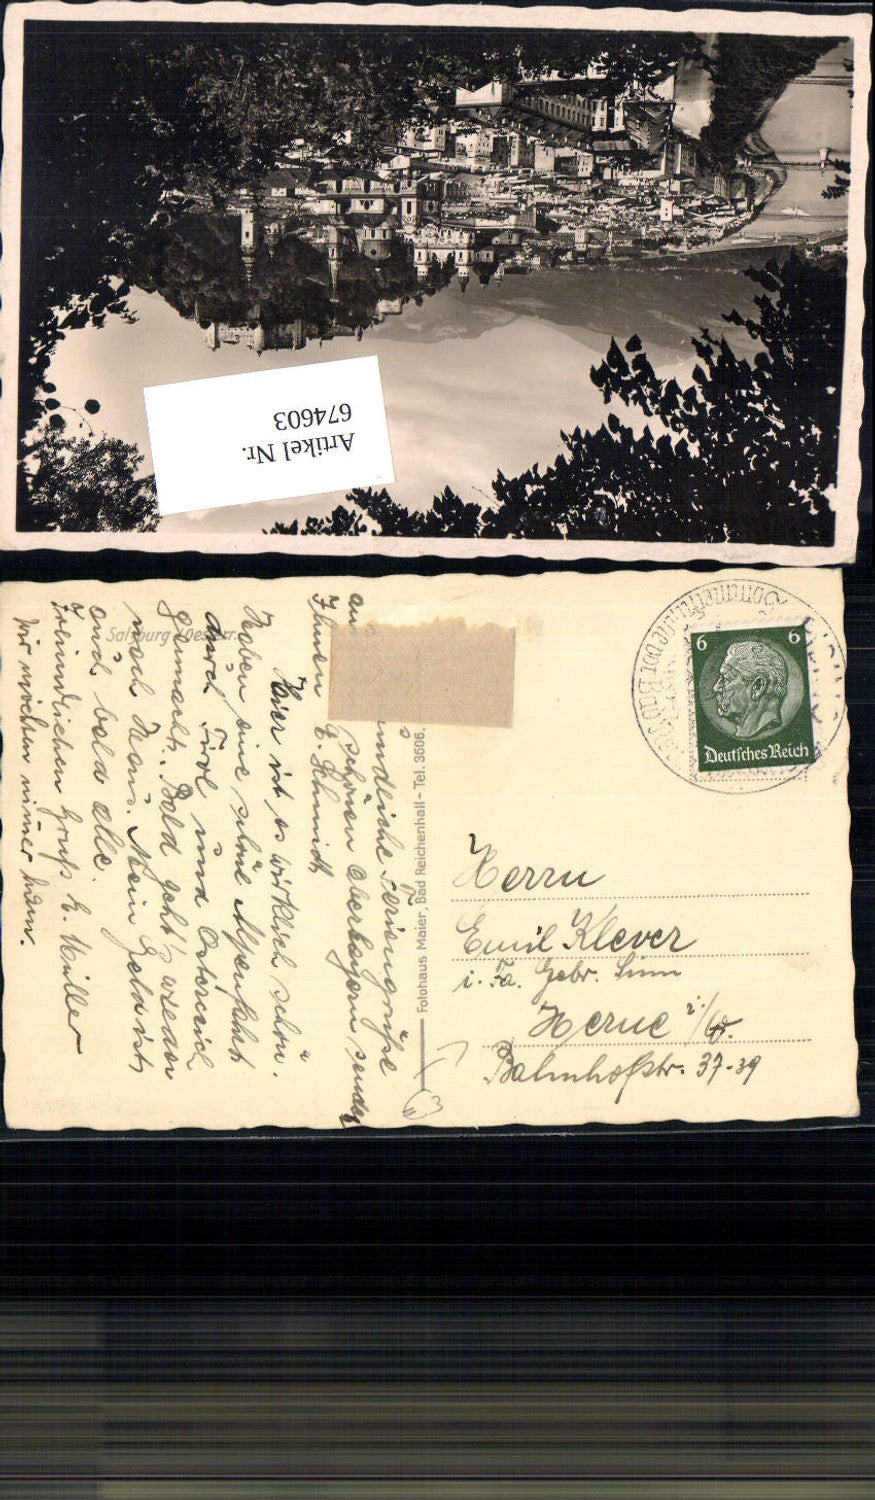 Artikel Nr.
674603
Salzburg (Oesterr.
6 6
Deutsches Reich
Fotohaus Maier, Bad Reichenhall - Tel. 3606.
Herrn
Emil Klever
i. Fa. Gebr. Sinn
Herne i/W.
Bahnhofstr. 37-39
Feriengrüße
schönen Oberbayern sendet
Ihnen E. Schmidt
Hier ist es wirklich schön.
Haben eine schöne Alpenfahrt
durch Tirol und Österreich
gemacht. Bald geht's wieder
nach Haus. Mein Geld ist
auch bald alle.
Freundlichen Gruß H. Müller
wir möchten nimer heim.